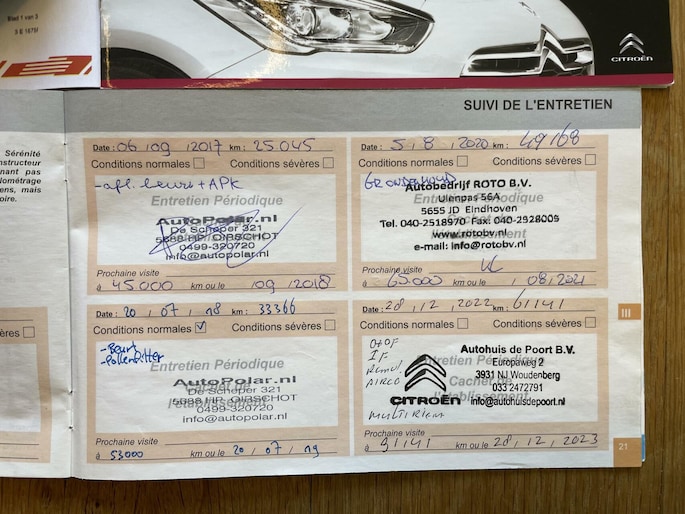 Blad 1 van 3
CITROËN
SUIVI DE L'ENTRETIEN
Sérénité
nstructeur
nant pas
lométrage
ens, mais
oire.
ères
Date : 06 / 09 / 2017 km : 25.045
Conditions normales Conditions sévères
-afl. beurt + APK
Entretien Périodique
AutoPolar.nl
De Scheper 321
5688 HP OIRSCHOT
0499-320720
info@autopolar.nl
Prochaine visite
à 45.000 km ou le 09 / 2018
Date : 5 / 8 / 2020 km : 49168
Conditions normales Conditions sévères
GR ONDERHOUD
Autobedrijf ROTO B.V.
Entretien Périodique
Ulenpas 56A
5655 JD Eindhoven
Tel. 040-2518970 Fax: 040-2928009
www.rotobv.nl
e-mail: info@rotobv.nl
Prochaine visite
à 65.000 km ou le 08 / 2021
Date : 20 / 07 / 18 km : 33366
Conditions normales Conditions sévères
-Beurt
-Pollenfilter
Entretien Périodique
AutoPolar.nl
De Scheper 321
5688 HP OIRSCHOT
l'établissement
0499-320720
info@autopolar.nl
Prochaine visite
à 53000 km ou le 20 / 07 / 19
Date : 28 / 12 / 2022 km : 61141
Conditions normales Conditions sévères
IF
AIRCO
MULTIRIEM
Autohuis de Poort B.V.
Entretien Périodique
Europaweg 2
3931 NJ Woudenberg
Cachet de
033 2472791
l'établissement
CITROËN
info@autohuisdepoort.nl
Prochaine visite
à 91141 km ou le 28 / 12 / 2023
III
21